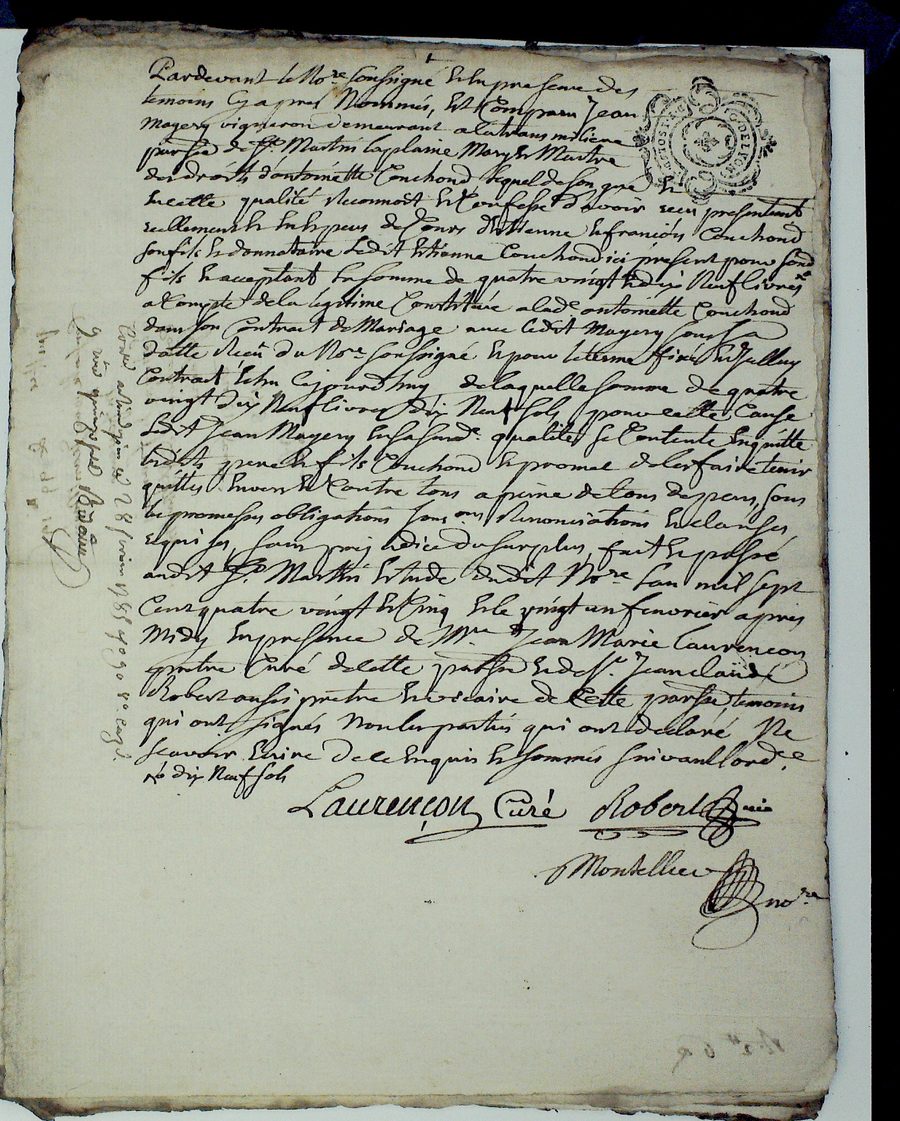 Pardevant le No.re soussigné et en presence des
temoins cy apres Nommés, est Comparu Jean
Magery vigneron demeurant a
parse de St Martin la plaine Mary et Maitre
des droits d'antoinette Couchond lequel de son gré et
en cette qualité Reconnoit et Confesse d'avoir recu presentemt
reellement et en especes de Cours d'Etienne et françois Couchond
son fils et donnataire ledit Etienne Couchond ici present pour sond
fils et acceptant la somme de quatre vingt et dix Neuf livres
a Compte de la legitime Constituée a lade antoinette Couchond
dans son Contract de Mariage avec ledit Magery sous sa
datte Recû du No.re soussigné et pour le terme
Contract et hu cejourdhuy de laquelle somme de quatre
vingt dix Neuf livres dix Neuf sols pour cette Cause
Ledit Jean Magery en sa susd.e qualité se Contente en quitte
lesdits pere et fils Couchond et promet de les faire tenir
quittes envers et Contre tous a peine de tous depens, sous
les promesses obligations sous.ons Renonciations et clauses
requises, sans prejudice du surplus, fait et passé
audit St Martin Etude dudit No.re l'an mil sept
Cent quatre vingt et Cinq et le vingt un fevrier apres
Midy en presence de M.re Jean Marie Laurençon
pretre Curé de cette parse et de Sr. Jean claude
Robert aussi prêtre et vicaire de Cette parse, temoins
qui ont signés Non les parties qui ont declaré Ne
scavoir Ecrire de ce enquis et sommés suivant l'ord.e
dix Neuf sols
Laurençon Curé Robert vic
Montellier no.re
28 fevrier 1785
quinze sols